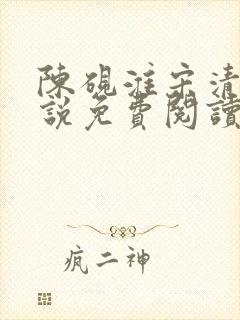 陳硯淮宋清
說免費閱讀
瘋二神